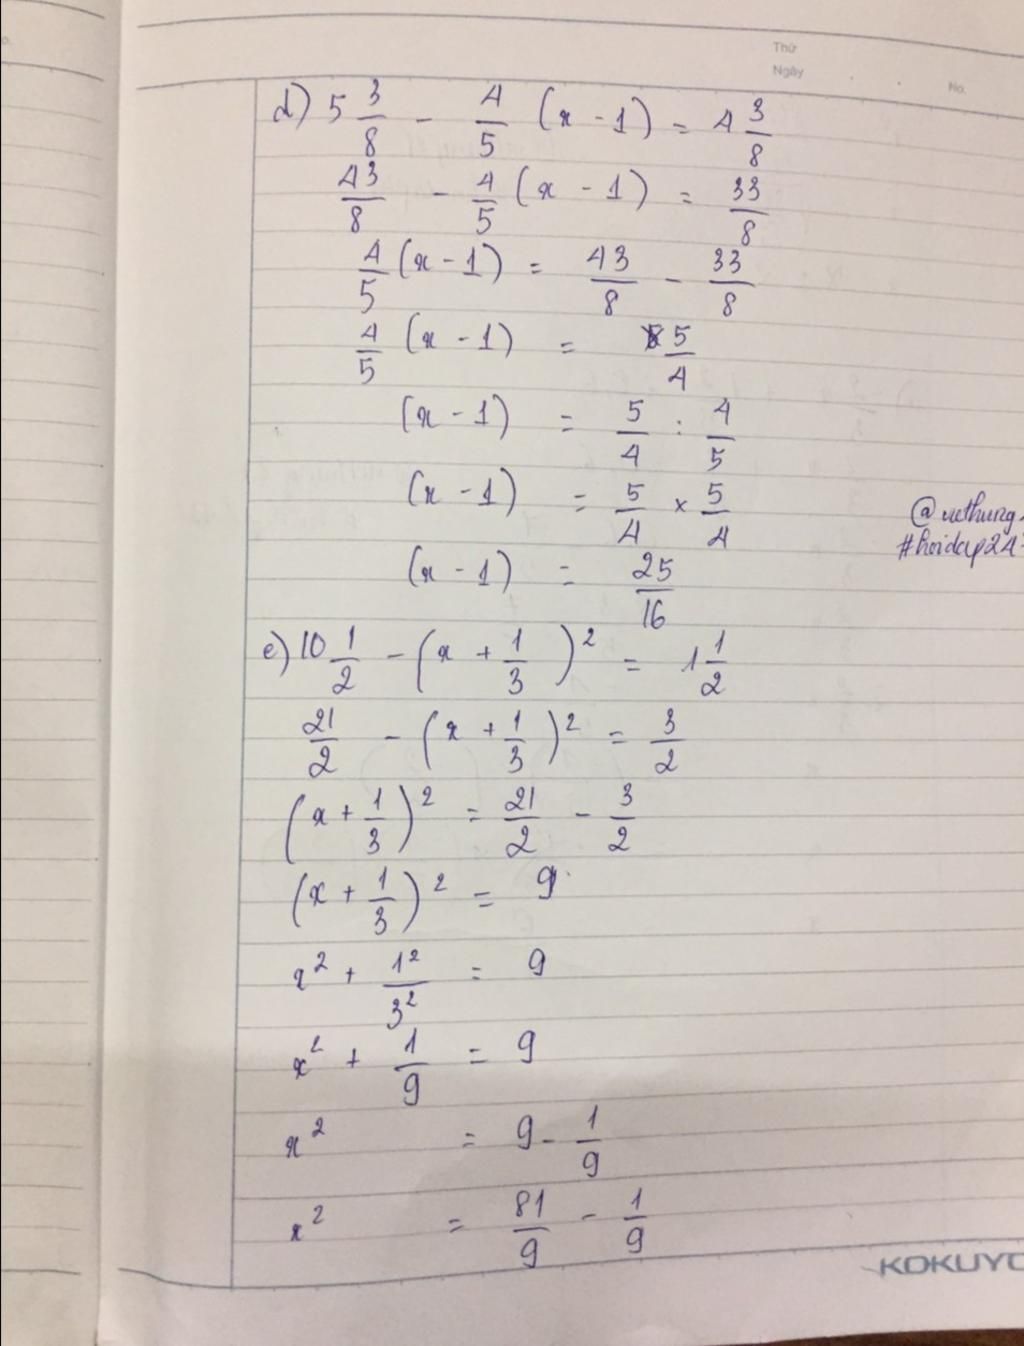 Thứ
Ngày
No.
d) 5 3/8 - 4/5 (x - 1) = 4 3/8
43/8 - 4/5 (x - 1) = 33/8
4/5 (x - 1) = 43/8 - 33/8
4/5 (x - 1) = 5/4
(x - 1) = 5/4 : 4/5
(x - 1) = 5/4 × 5/4
(x - 1) = 25/16
#hoidap24
e) 10 1/2 - (x + 1/3)² = 1 1/2
21/2 - (x + 1/3)² = 3/2
(x + 1/3)² = 21/2 - 3/2
(x + 1/3)² = 9
x² + 1²/3² = 9
x² + 1/9 = 9
x² = 9 - 1/9
x² = 81/9 - 1/9
KOKUYO